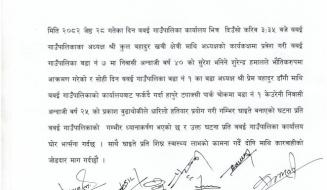 मिति २०८२ जेष्ठ २८ गतेका दिन बबई गाउँपालिका कार्यालय भित्र दिउँसो करिब ३:३५ बजे बबई
गाउँपालिकाका अध्यक्ष श्री कुल बहादुर खत्री क्षेत्री माथि अध्यक्षको कार्यकक्षमा प्रवेश गरी बबई
गाउँपालिका वडा नं ७ मा निवासी अन्दाजी वर्ष ४० को सुरेश भनिने सुरेन्द्र हमालले भौतिकरुपमा
आक्रमण गरेको र सोही दिन बबई गाउँपालिका वडा नं १ का वडा अध्यक्ष श्री प्रेम बहादुर डाँगी माथि
बबई गाउँपालिकाको कार्यालयबाट फर्कंदै गर्दा हापुरे टाक्सी पार्क चोकमा वडा नं १ केउरेनी निवासी
अन्दाजी वर्ष २५ को प्रकाश बुढाथोकीले धारिलो हतियार प्रयोग गरी गम्भिर घाइते बनाएको घटना प्रति
बबई गाउँपालिकाको गम्भीर ध्यानाकर्षण भएको छ र उक्त घटना प्रति बबई गाउँपालिका कार्यालय
घोर भर्त्सना गर्दछ । साथै घाइते प्रति शिघ्र स्वास्थ्य लाभको कामना गर्दै दोषि माथि कारवाहीको
जोडदार माग गर्दछौं ।